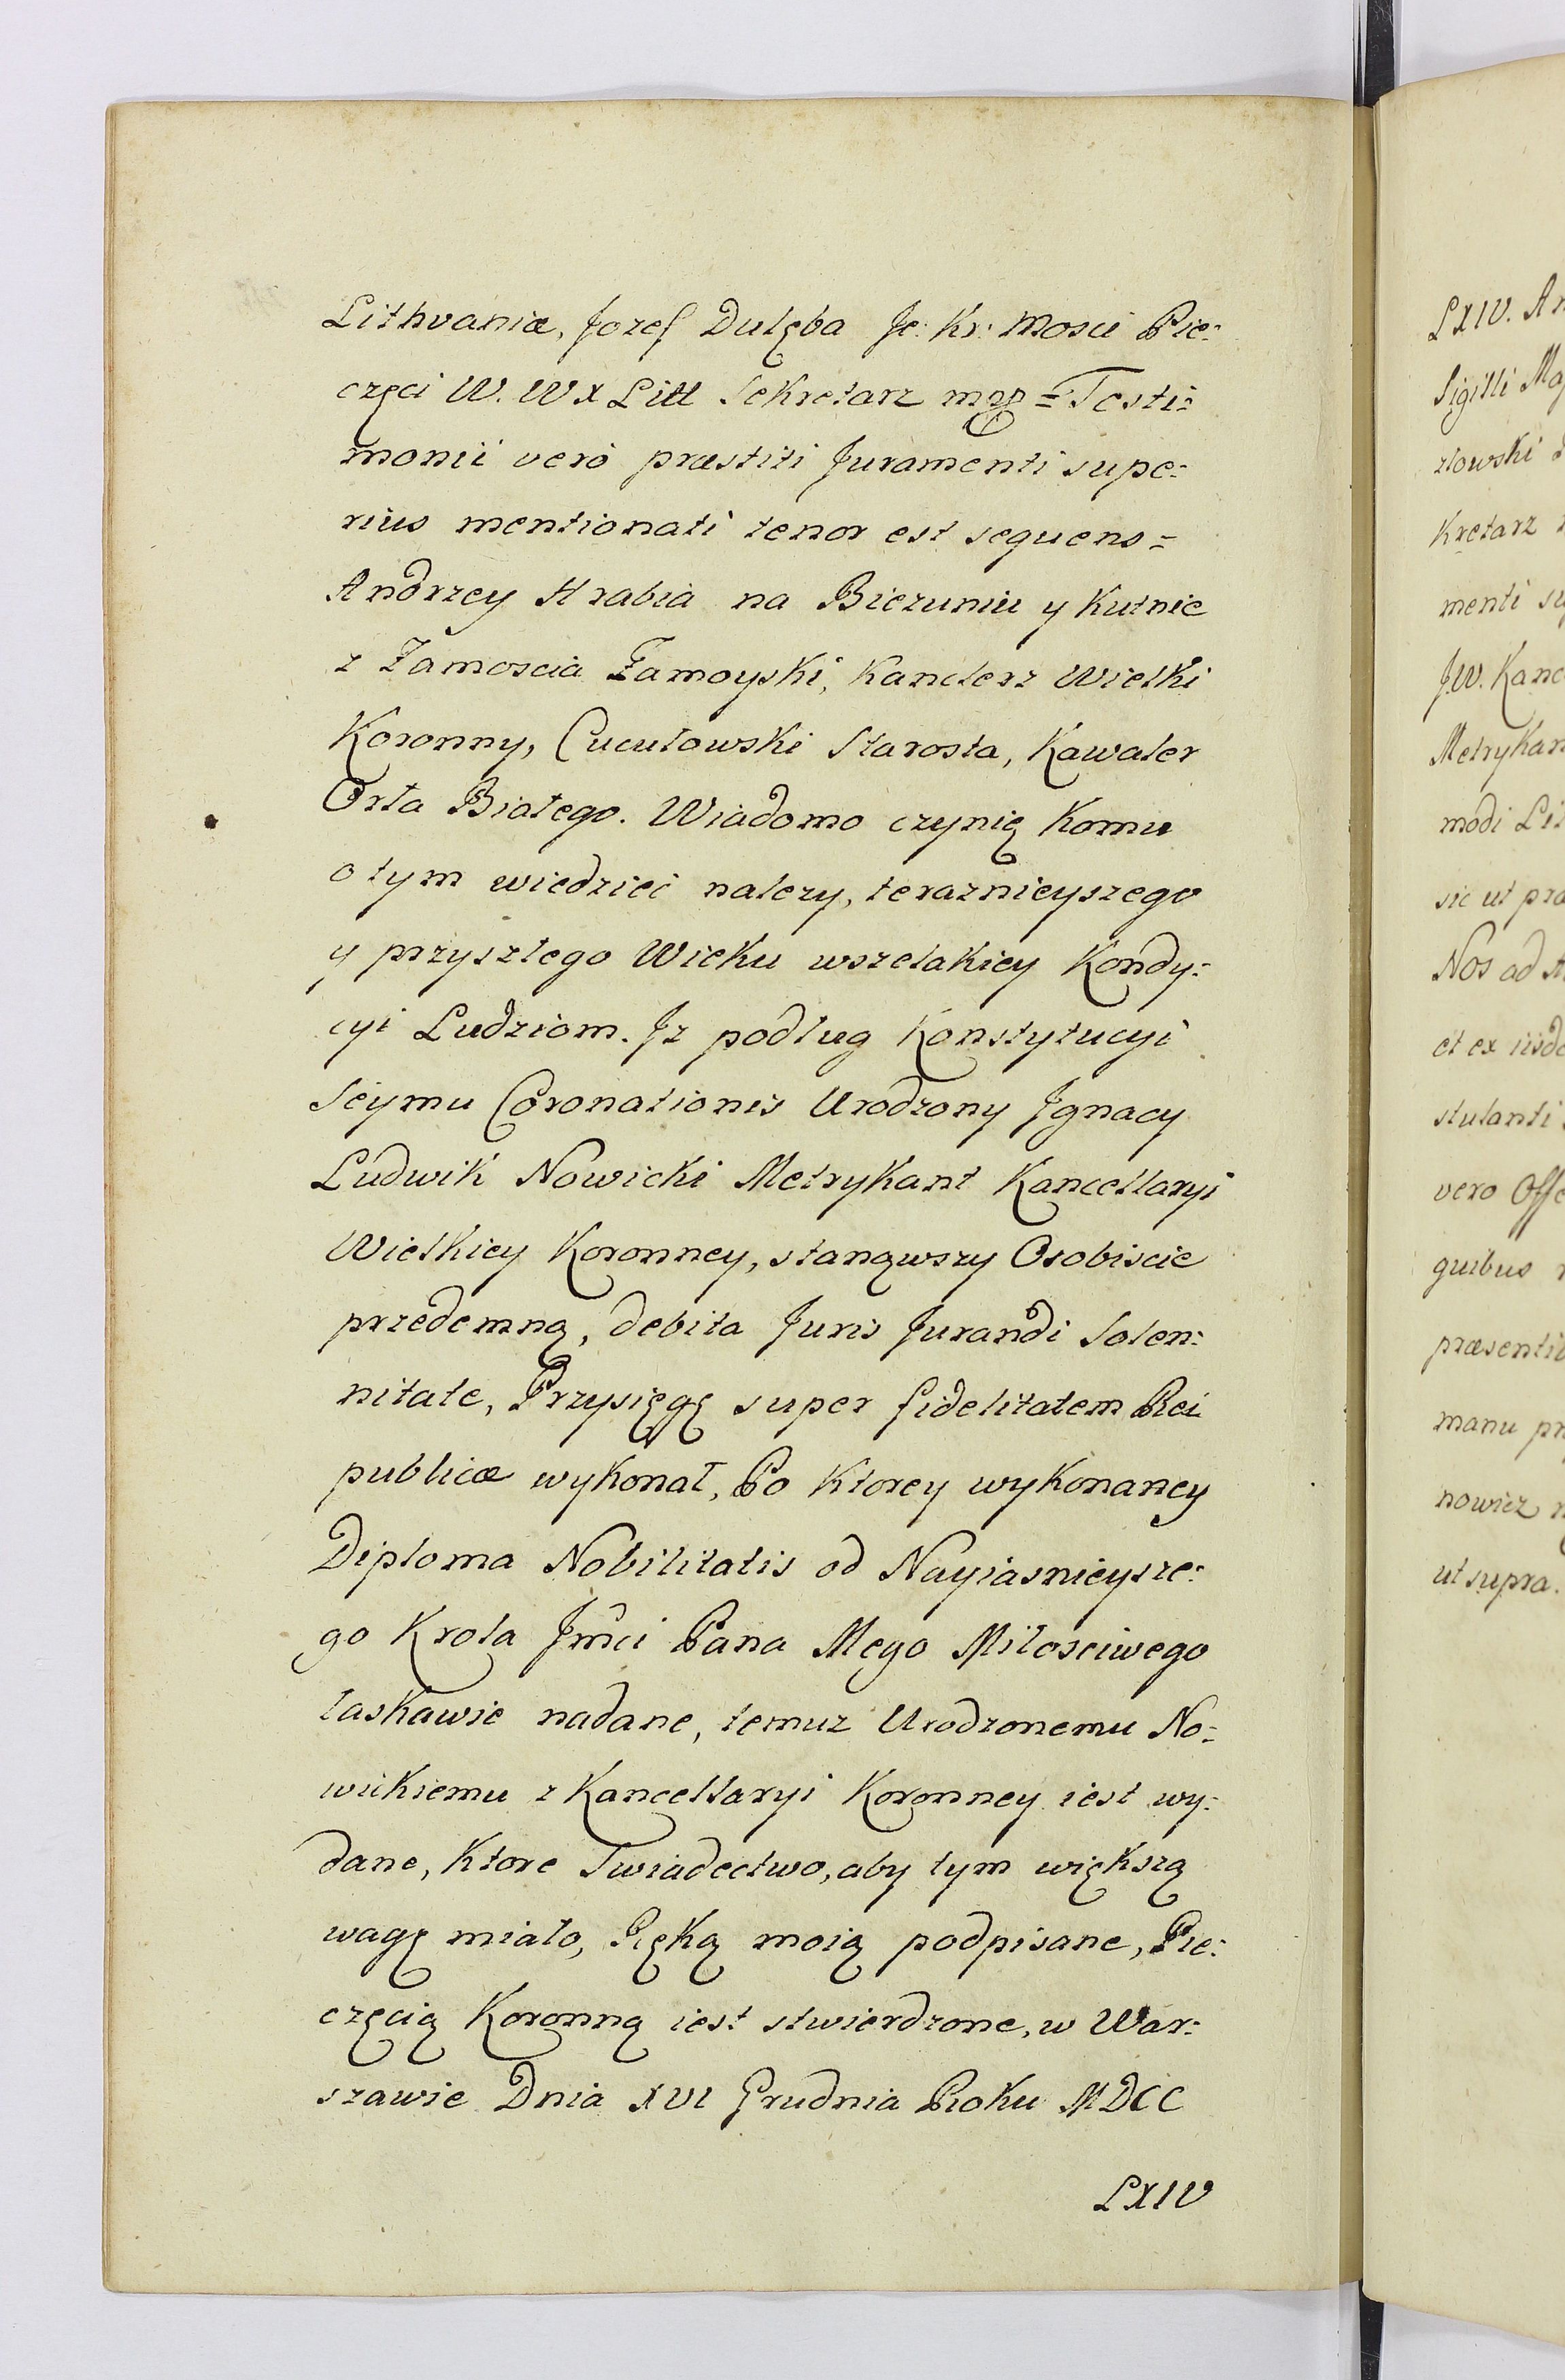 Lithvaniæ, Jozef Dulęba Je: Kr: Mosci Pie:
częci W. W X Litt Sekretarz mpp = Testi:
monii verò præstiti Juramenti supe:
rius mentionati tenor est sequens =
Andrzey Hrabia na Biezuniu y Kutnie
z Zamoscia Zamoyski, Kanclerz Wielki
Koronny, Cucułowski Starosta, Kawaler
Orła Białego. Wiadomo czynię Komu
o tym wiedzieć nalezy, teraznieyszego
y przyszłego Wieku wszelakiey Kondy:
cyi Ludziom. Jz podług Konstytucyi
Seymu Coronationis Urodzony Jgnacy
Ludwik Nowicki Metrykant Kancellaryi
Wielkiey Koronney, stanąwszy Osobiscie
przedemną, debita Juris Jurandi Solen:
nitate, Przysięgę super fidelitatem Rei
publicæ wykonał, Po Ktorey wykonaney
Diploma Nobilitatis od Nayiasnieysze:
go Krola Jmći Pana Mego Miłosciwego
łaskawie nadane, temuz Urodzonemu No:
wickiemu z Kancellaryi Koronney iest wy:
dane, Ktore Swiadectwo, aby tym większą
wagę miało, Ręką moią podpisane, Pie:
częcią Koronną iest stwierdzone, w War:
szawie Dnia XVI Grudnia Roku MDCC
LXIV
LXIV. An
Sigilli Maj
złowski
Kretarz
menti su
J.W. Kanc
Metrykan
modi Lit
sic ut præ
Nos ad A
et ex iisde
stulanti
vero Offe
quibus
præsentib
manu pr
nowicz
ut supra.